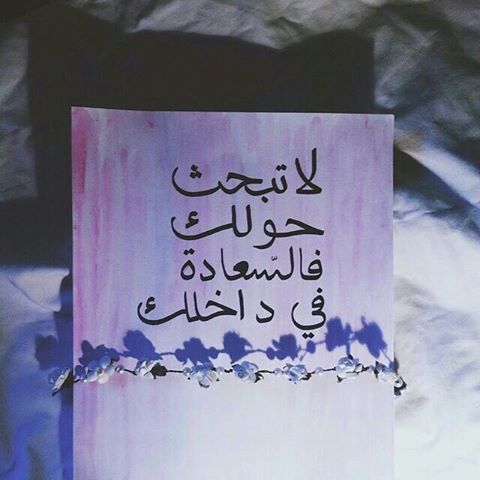 لا تبحث
حولك
فالسّعادة
في داخلك